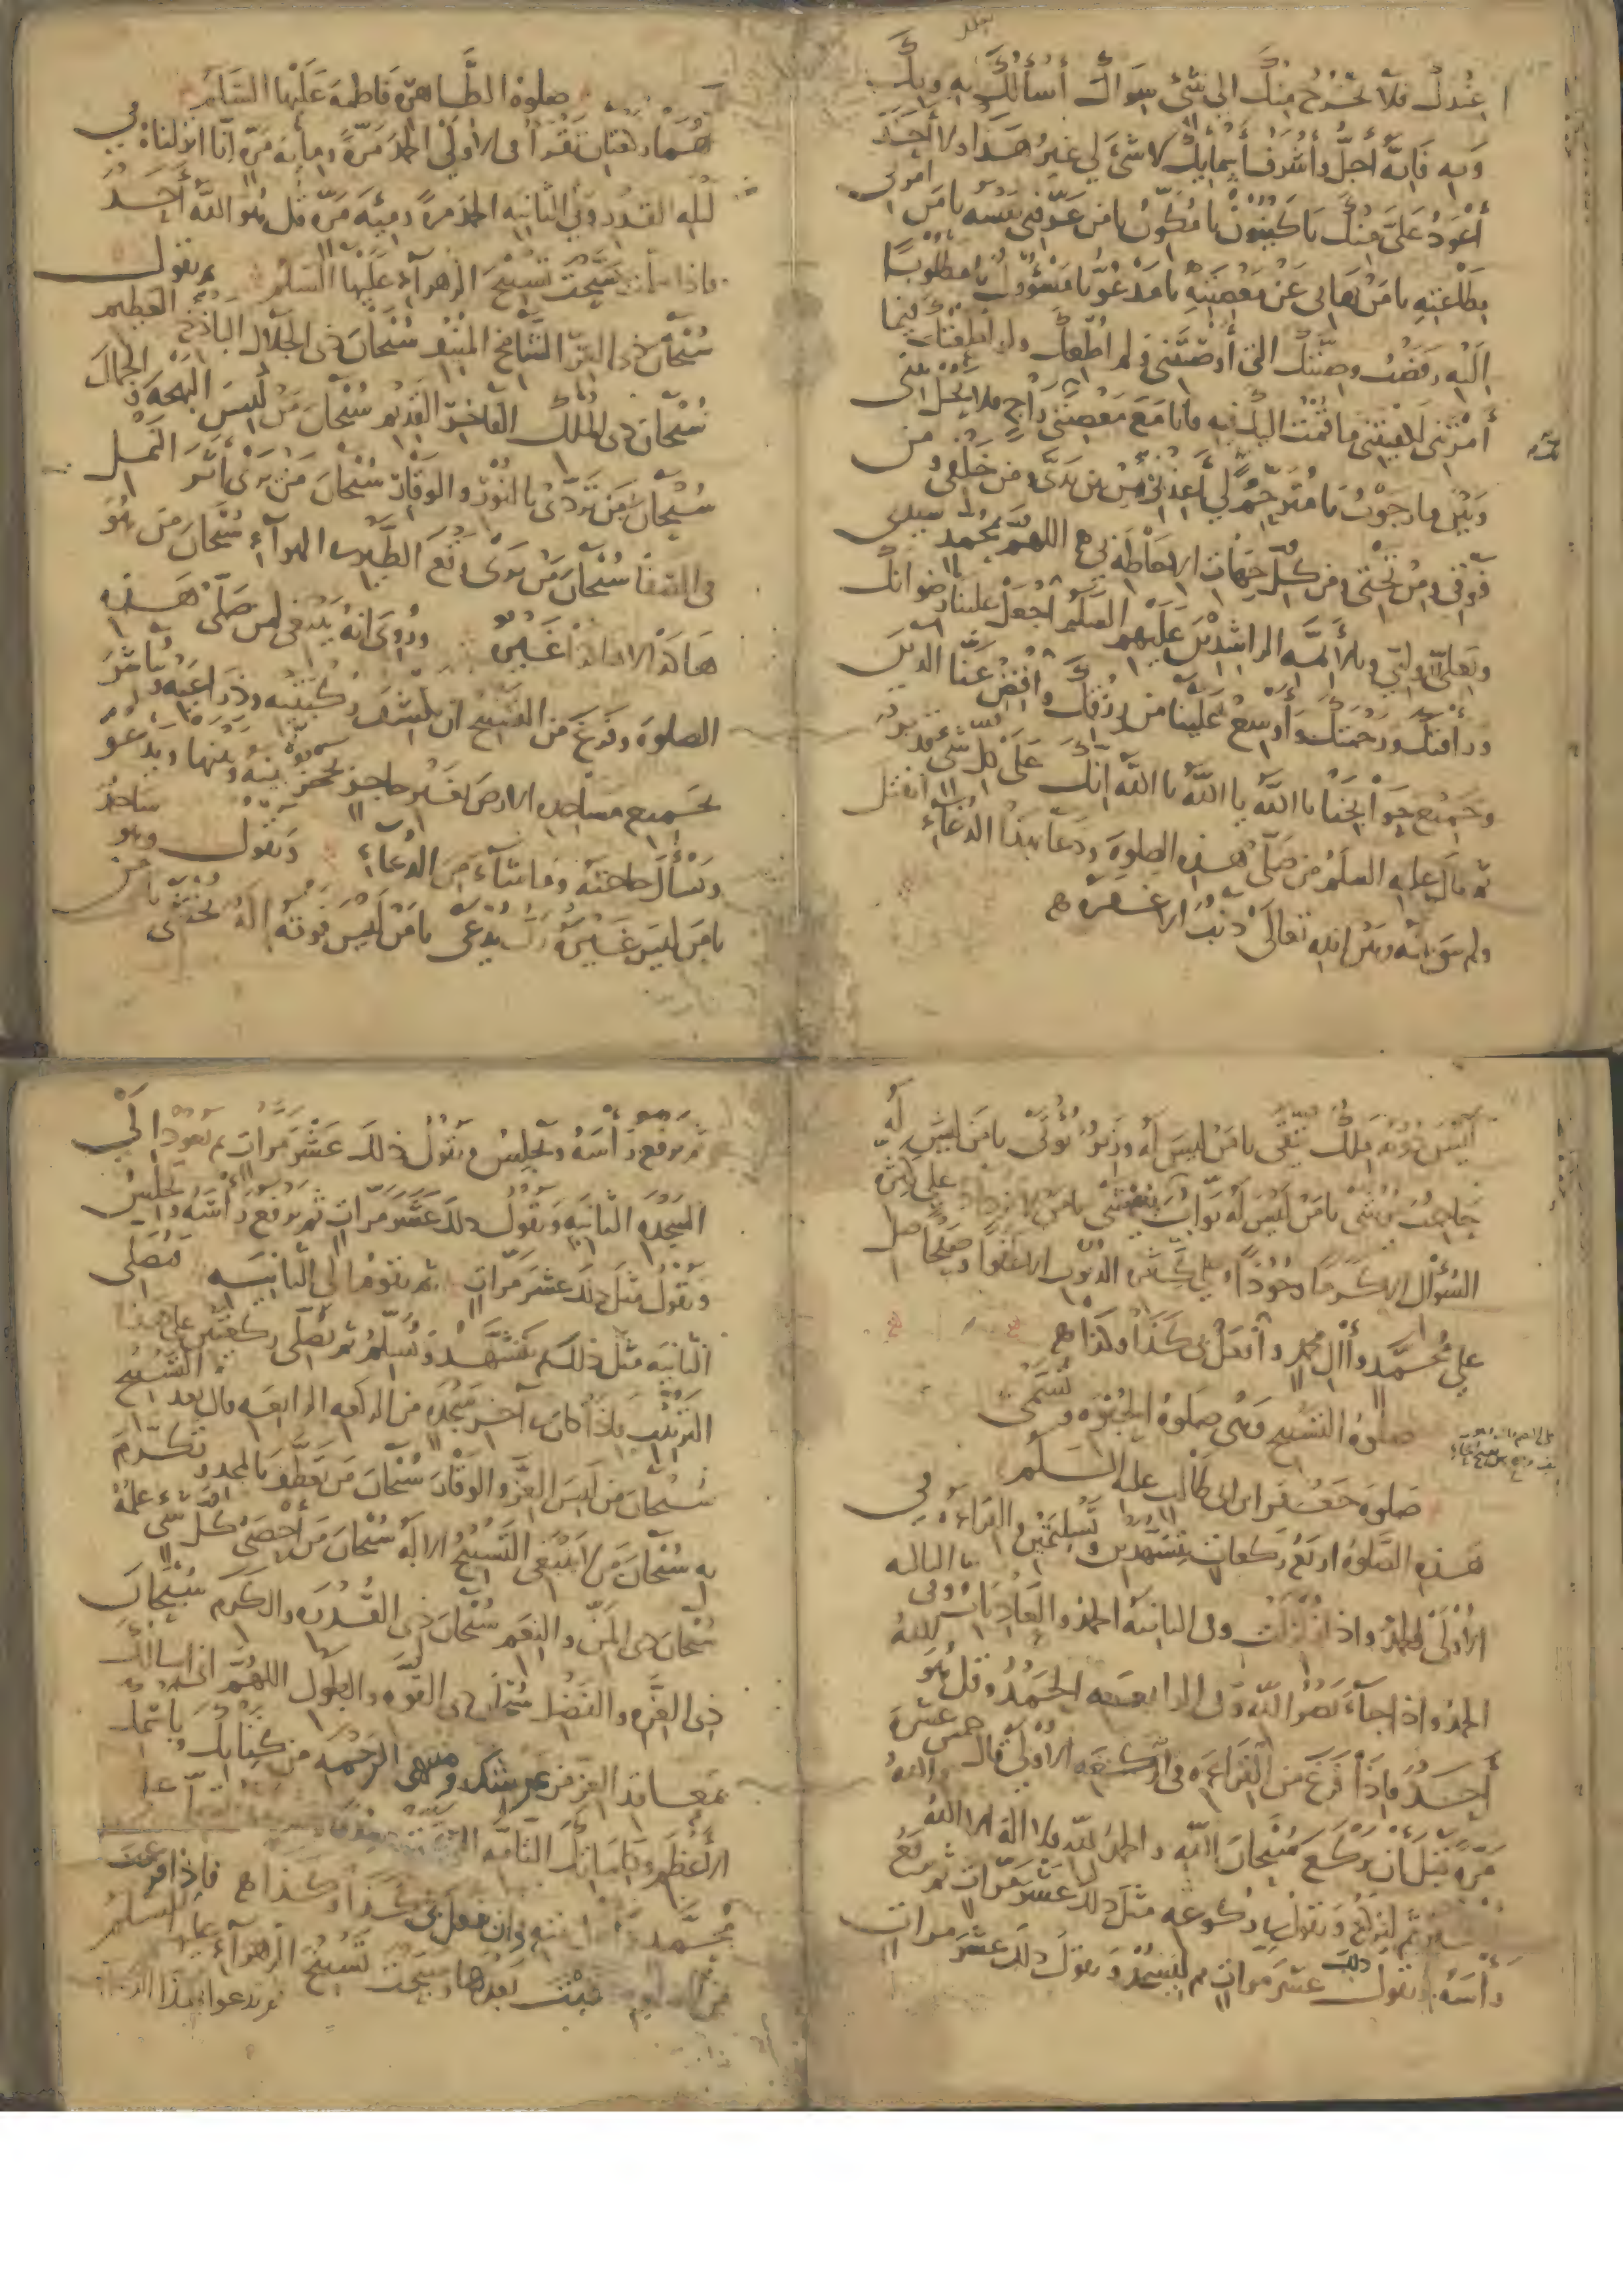 عندك فلا تخرج منك الى شئ سواك أسألك به وبك
وبه فانه أجل وأشرف أسمائك لا شئ لي غير هذا ولا أحد
أعود علي منك يا كينون يا مكون يا من عرفني نفسه يا من امرني
بطاعته يا من نهاني عن معصيته يا مدعو يا مسؤول يا مطلوبا
اليه رفضت وصيتك التي أوصيتني ولم اطعك ولو اطعتك فيما
أمرتني لكفيتني ما قمت اليك فيه وانا مع معصيتي راج فلا تحل بيني
وبين ما رجوت يا مترحم لي أعذني من بين يدي ومن خلفي ومن
فوقي ومن تحتي ومن كل جهات الاحاطة بي اللهم بمحمد سيدي
وبعلي وليي وبالأئمة الراشدين عليهم السلم اجعل علينا رضوانك
ورأفتك ورحمتك وأوسع علينا من رزقك واقض عنا الدين
وجميع حوائجنا يا الله يا الله يا الله انك على كل شئ قدير
ثم قال عليه السلم من صلى هذه الصلوة ودعا بهذا الدعاء انفتل
ولم يبق بينه وبين الله تعالى ذنب الا غفره
صلوة الطاهرة فاطمة عليها السلم
هما ركعتان تقرأ في الاولى الحمد مرة ومأية مرة انا انزلناه في
ليله القدر وفي الثانيه الحمد مرة ومئة مرة قل هو الله أحد
فاذا سلمت سبحت تسبيح الزهرآء عليها السلم ثم تقول
سبحان ذى العز الشامخ المنيف سبحان ذى الجلال الباذخ العظيم
سبحان ذى الملك الفاخر القديم سبحان من لبس البهجه والجمال
سبحان من تردى بالنور والوقار سبحان من يرى أثر النمل
في الصفا سبحان من يرى وقع الطير في الهوآء سبحان من هو
هكذا لا هكذا غيره وروي انه ينبغي لمن صلى هذه
الصلوة وفرغ من التسبيح ان يكشف ركبتيه وذراعيه ويباشر
بجميع مساجده الارض بغير حاجز يحجز بينه وبينها ويدعو
ويسأل حاجته وما شاء من الدعاء ويقول وهو ساجد
يا من ليس غيره رب يدعى يا من ليس فوقه اله يخشى يا من
ليس دونه ملك يتقى يا من ليس له وزير يؤتى يا من ليس له
حاجب يرشى يا من ليس له بواب يغشى يا من لا يزداد على كثرة
السؤال الا كرما وجودا وعلى كثرة الذنوب الا عفوا وصفحا صل
على محمد وأال محمد وافعل بى كذا وكذا
صلوة التسبيح وهي صلوة الحبوه وتسمى
صلوة جعفر ابن ابى طالب عليه السلم
هذه الصلوة اربع ركعات بتشهدين وتسليمتين والقراءه في
الاولى الحمد واذا زلزلت وفى الثانية الحمد والعاديات وفى الثالثه
الحمد واذا جآء نصر الله وفى الرابعه الحمد وقل هو الله
أحد فاذا فرغ من القراءه فى الركعه الاولى قال خمس عشرة
مرة قبل ان يركع سبحان الله والحمد لله ولا اله الا الله والله
ثم ليركع ويقول في ركوعه مثل ذلك عشر مرات ثم يرفع
رأسه ويقول ذلك عشر مرات ثم ليسجد ويقول ذلك عشر مرات
ثم يرفع رأسه ويجلس ويقول ذلك عشر مرات ثم يعود الى
السجده الثانيه ويقول ذلك عشر مرات ثم يرفع رأسه ويجلس
ويقول مثل ذلك عشر مرات ثم يقوم الى الثانيه فيصلى
الثانيه مثل ذلك ثم يتشهد ويسلم ثم يصلى ركعتين على هذا
الترتيب فاذا كان آخر سجده من الركعه الرابعه قال بعد التسبيح
سبحان من لبس العز والوقار سبحان من تعطف بالمجد وتكرم
به سبحان من لا ينبغى التسبيح الا له سبحان من أحصى كل شئ علمه
سبحان ذى المن والنعم سبحان ذى القدره والكرم سبحان
ذى العزه والفضل سبحان ذى القوه والطول اللهم انى اسالك
بمعاقد العز من عرشك ومنتهى الرحمه من كتابك وباسمك
الأعظم وكلماتك التامه
محمد وان تفعل بى كذا وكذا فاذا فرغت
بعدها وسبحت تسبيح الزهرآء عليها السلم
ثم تدعوا بهذا